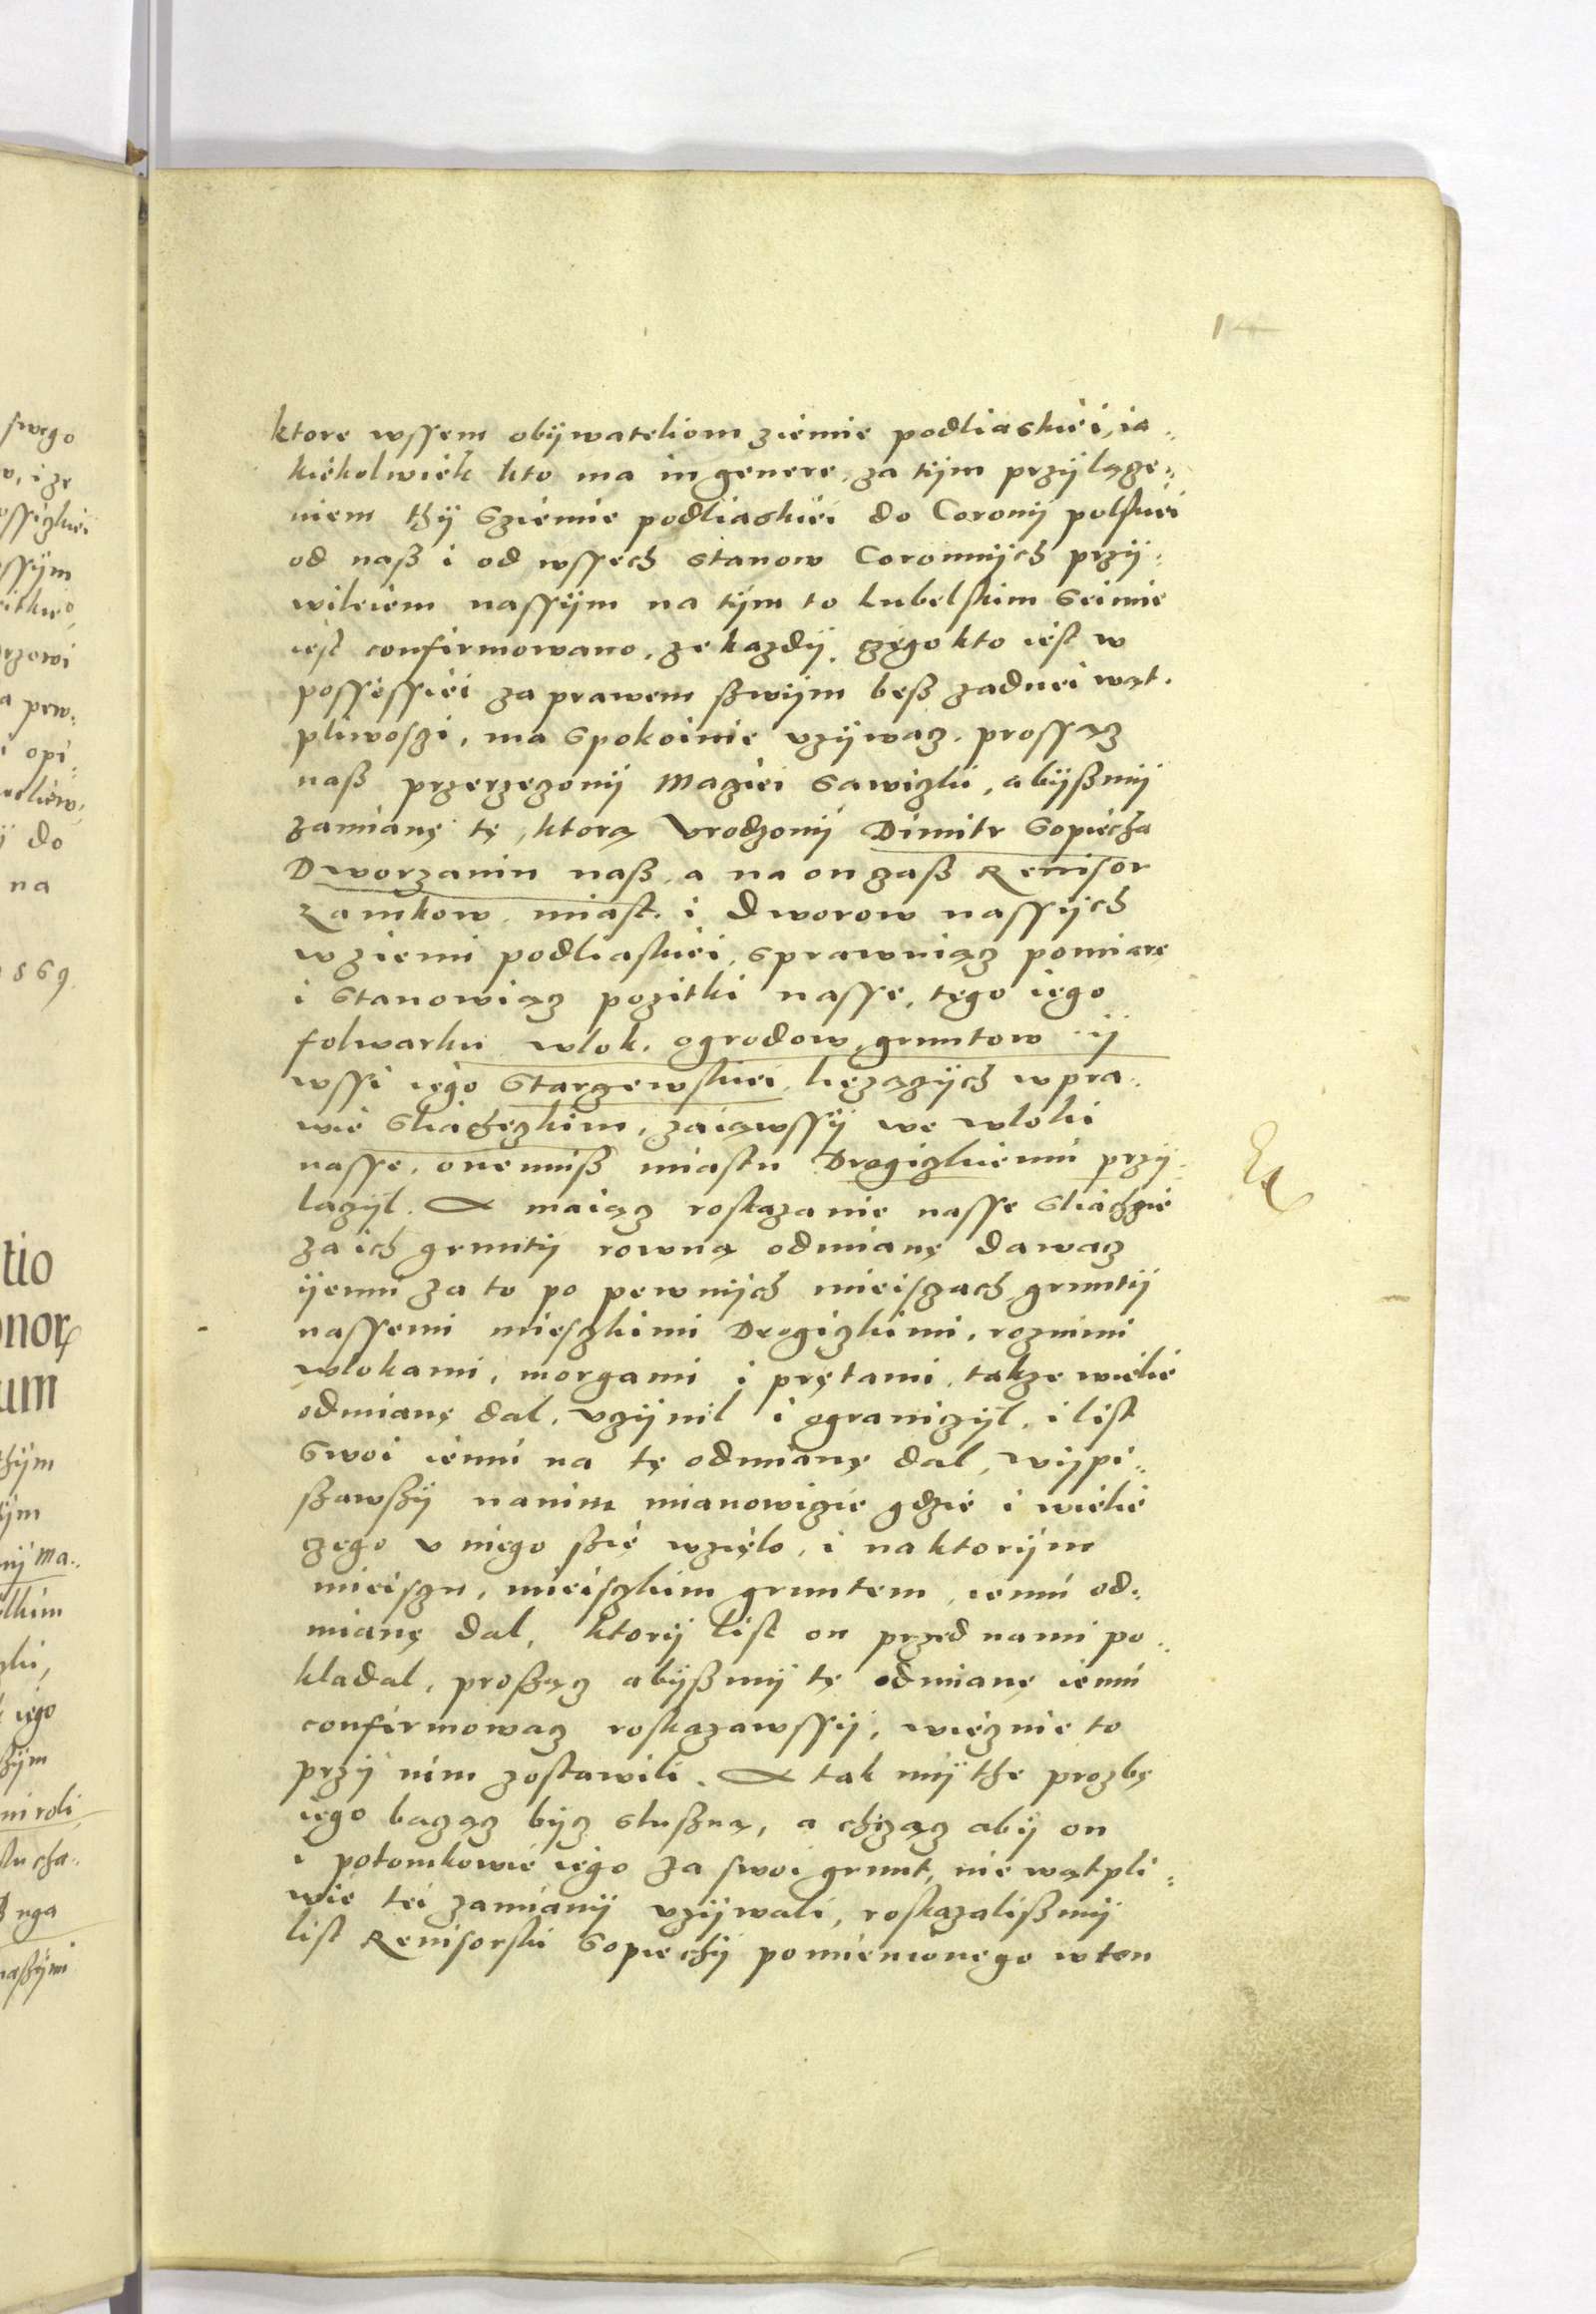 14
ktore wssem obÿwateliom ziemie podliaskiei, ia=
kiekolwiek kto ma in genere, za tÿm przÿlącze=
niem thÿ Sziemie podliaskiei do Coronÿ polskiei
od naß i od wssech Stanow Coronnÿch przÿ=
wileiem nassÿm na tÿm to Lubelskim Seimie
iest confirmowano, ze kazdÿ, czego kto iest w
possessiei za prawem ßwÿm beß zadnei wąt=
pliwosci, ma Spokoinie vzÿwacz. prossącz
naß przerzeczonÿ Maciei Sawiczki, abÿßmÿ
zamianę tę, ktorą Vrodzonÿ Dimitr Sopiecha
Dworzanin naß, a na on czaß Revisor
Zamkow, miast, i dworow nassÿch
w ziemi podliaskiei, Sprawuiącz pomiarę
i Stanowiącz pozitki nasse, tego iego
folwarku wlok, ogrodow, gruntow ÿ
wssi iego Starczewskiei, liezączÿch w pra=
wie Sliacheczkim, zaiąwssÿ we wloki
nasse, onemuß miastu Drogiczkiemu przÿ=
laczÿl. A maiącz roskazanie nasse Sliachcie
za ich gruntÿ rowną odmianę dawacz
ÿemu za to po pewnÿch mieisczach gruntÿ
nassemi miesczkimi Drogiczkimi, roznimi
wlokami, morgami i prętami, takze wielie
odmianę dal, vczÿnil i ograniczÿl, i list
Swoi iemu na tę odmianę dal, wÿpi=
ßawßÿ na nim mianowicie gdzie i wielie
czego v niego ßię wzięlo, i na ktorÿm
mieisczu, mieisczkim gruntem, iemu od=
mianę dal, ktorÿ list on przed nami po=
kladal, proßącz abÿßmÿ tę odmianę iemu
confirmowacz roskazawssÿ, wiecznie to
przÿ nim zostawili. A tak mÿ the prozbę
iego baczącz bÿcz slußną, a chczącz abÿ on
i potomkowie iego za swoi grunt, nie wątpli=
wie tei zamianÿ vzÿwali, roskazalißmÿ
list Revisorski Sopiechÿ pomienionego w ten
swego
na
1569
tio
onor
um